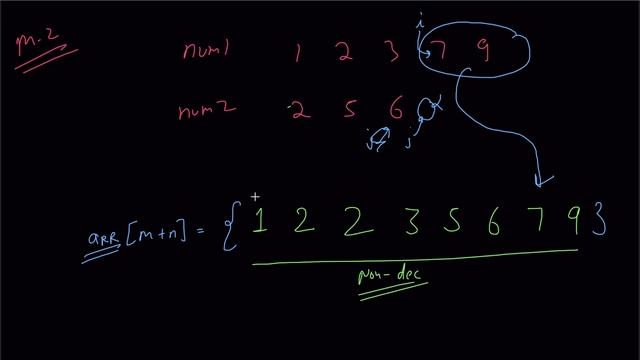 i
m-2
num1 1 2 3 7 9
num2 2 5 6
j j
arr[m+n] = { 1 2 2 3 5 6 7 9 }
non-dec